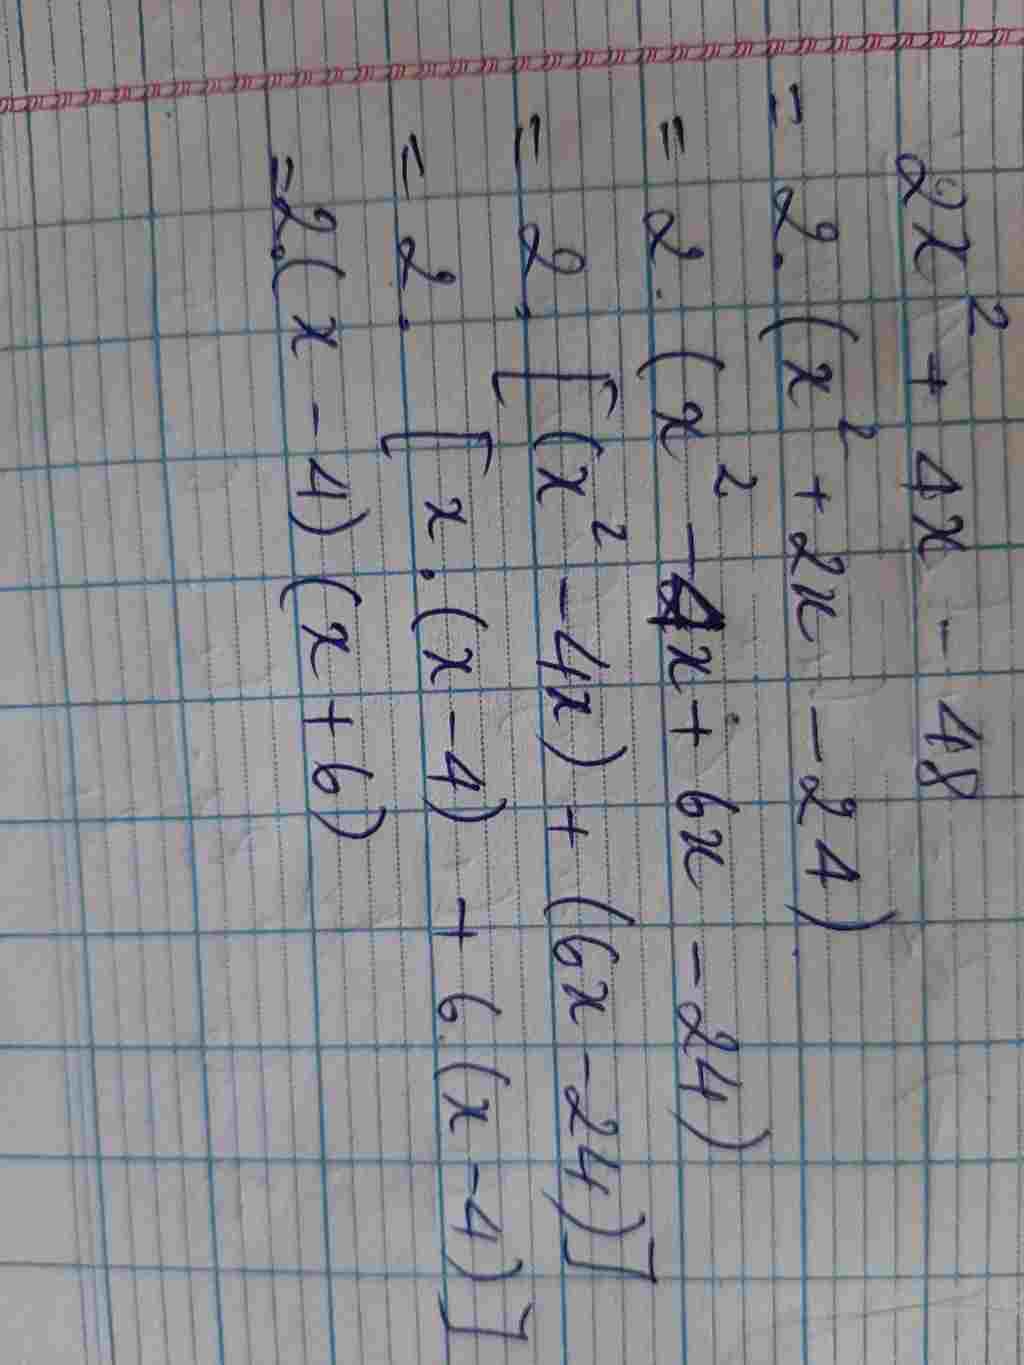 2x² + 4x - 48
= 2.(x² + 2x - 24)
= 2.(x² - 4x + 6x - 24)
= 2.[(x² - 4x) + (6x - 24)]
= 2.[x.(x - 4) + 6.(x - 4)]
= 2.(x - 4)(x + 6)